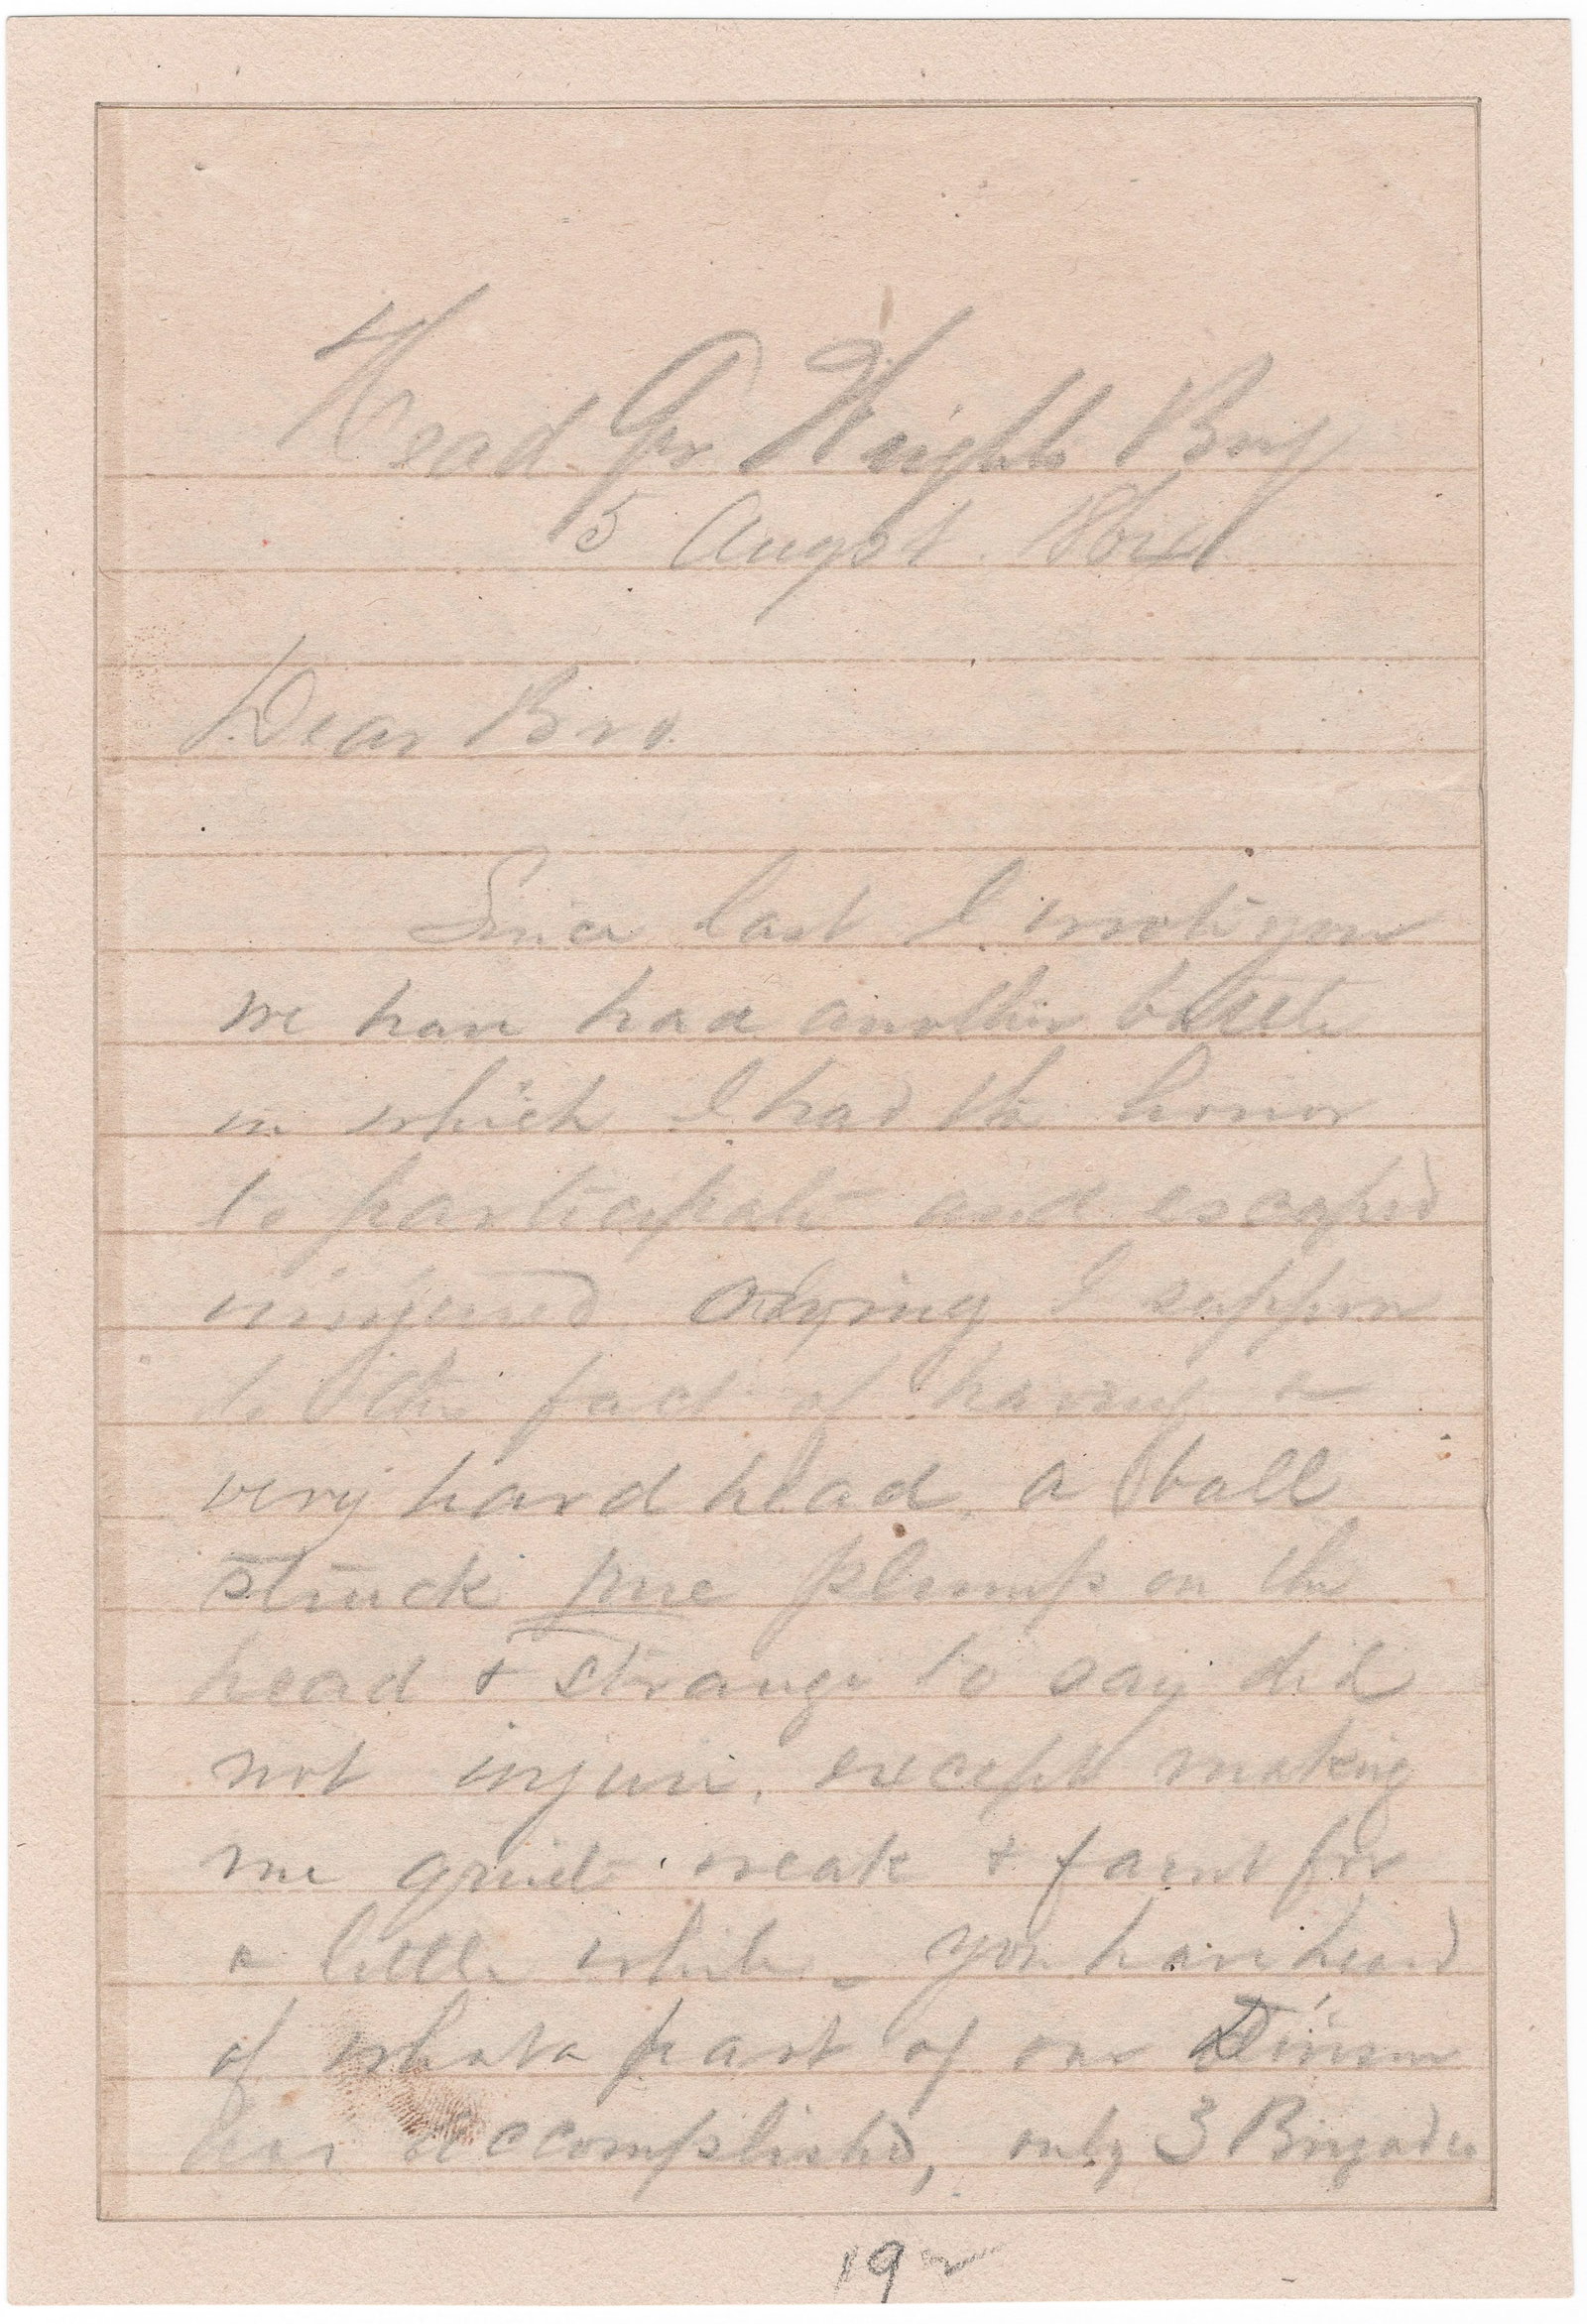 Head Qr Wrights Brig
5 Augst. 1864
Dear Bro.
Since last I wrote you
we have had another battle
in which I had the honor
to participate and escaped
uninjured owing I suppose
to the fact of having a
very hard head. a ball
struck me plump on the
head & strange to say did
not injure, except making
me quite weak & faint for
a little while - you have heard
of what a part of our Division
has accomplished, only 3 Brigades
19